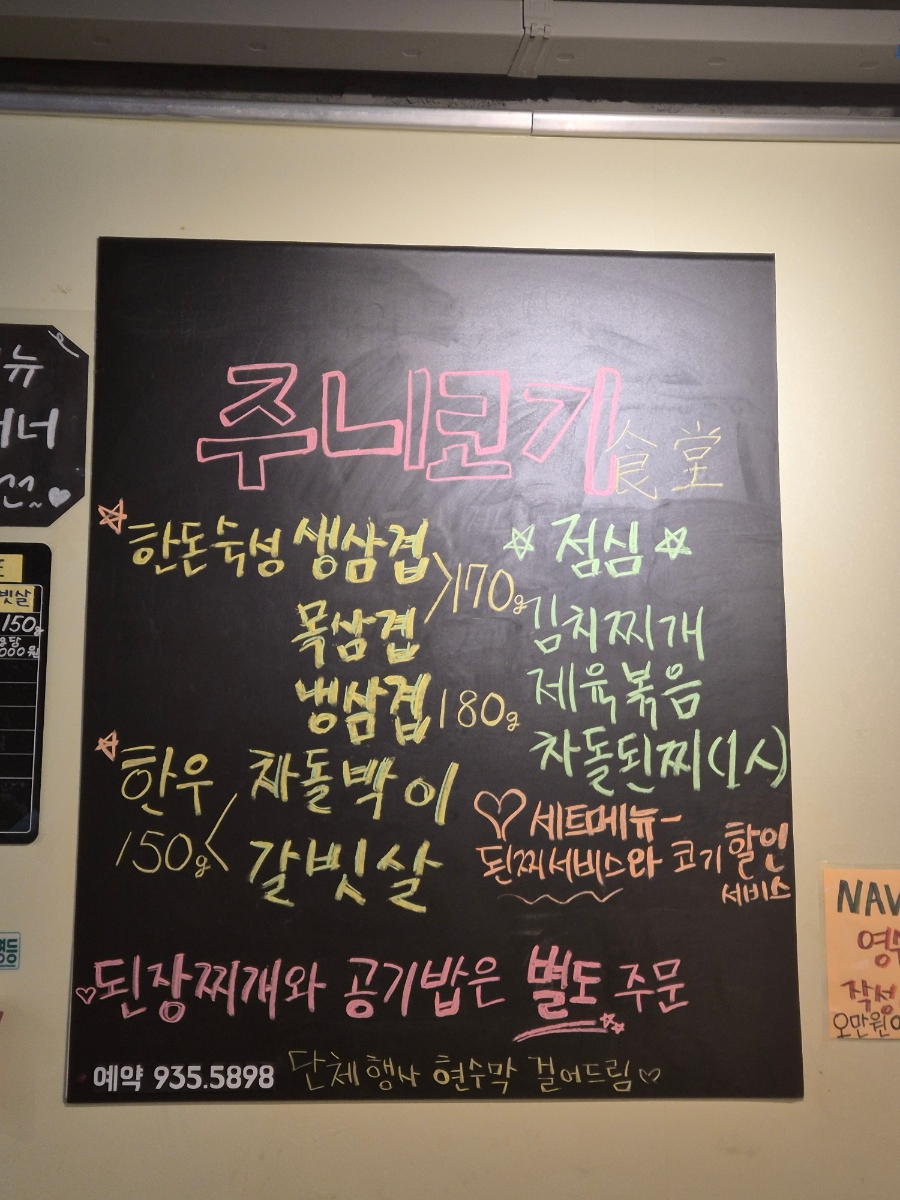 주니코기 食堂
한돈숙성 생삼겹
목삼겹
170g
냉삼겹 180g
한우 차돌박이
150g 갈빗살
점심
김치찌개
제육볶음
차돌된찌(1人)
세트메뉴-
된찌서비스와 코기할인
서비스
된장찌개와 공기밥은 별도 주문
예약 935.5898 단체행사 현수막 걸어드림
뉴
너
빗살
150g
000원
NAV
작성
오만원